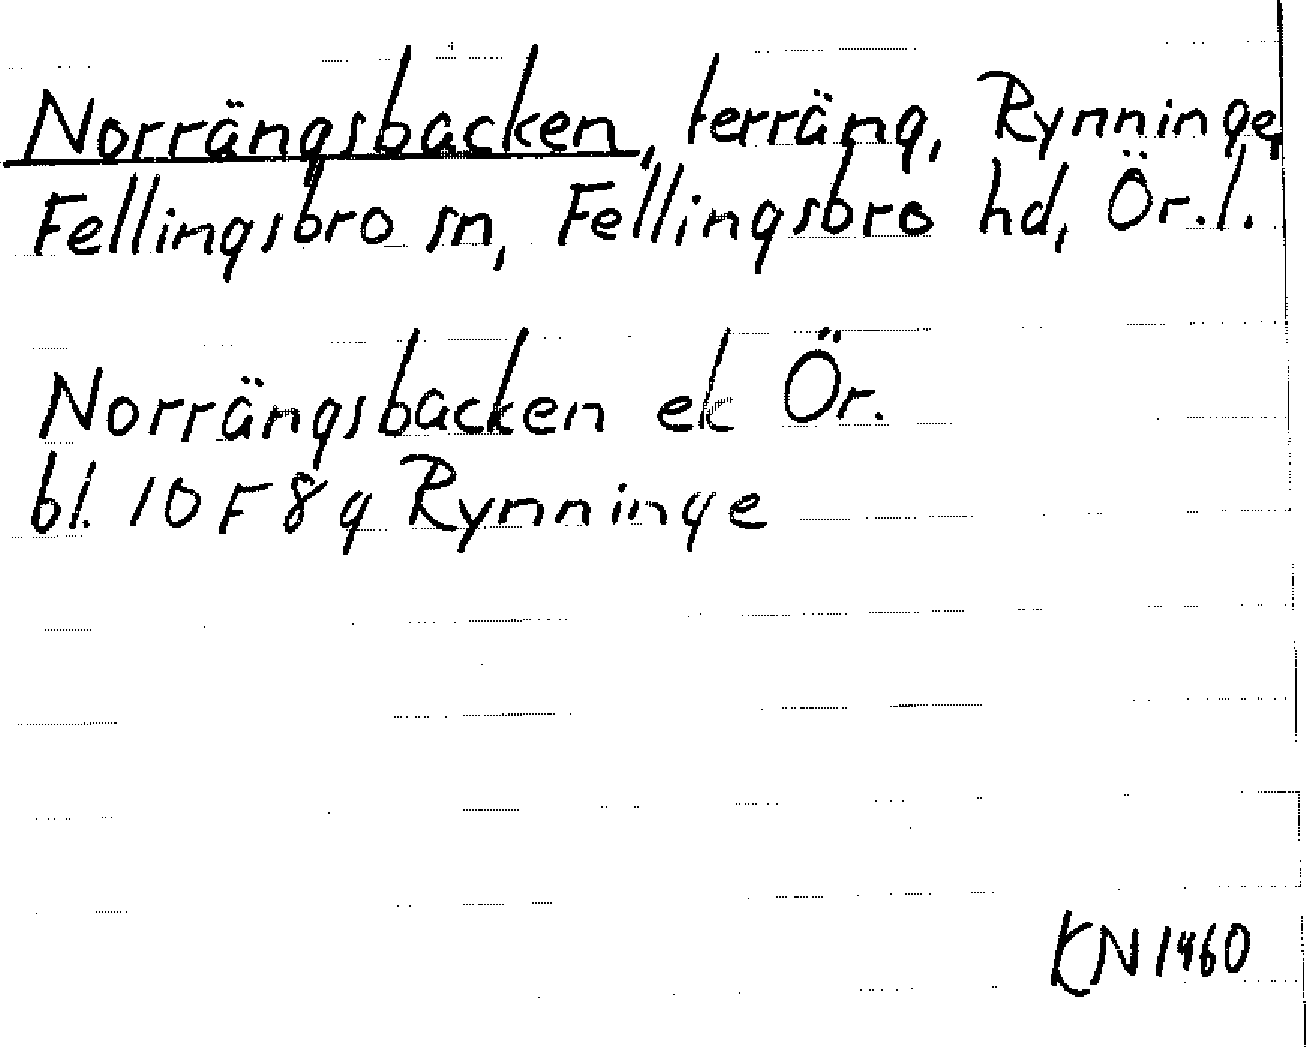 Norrängsbacken, terräng, Rynninge,
Fellingsbro sn, Fellingsbro hd, Ör.l.
Norrängsbacken ek Ör.
bl. 10F8g Rynninge
KN 1960